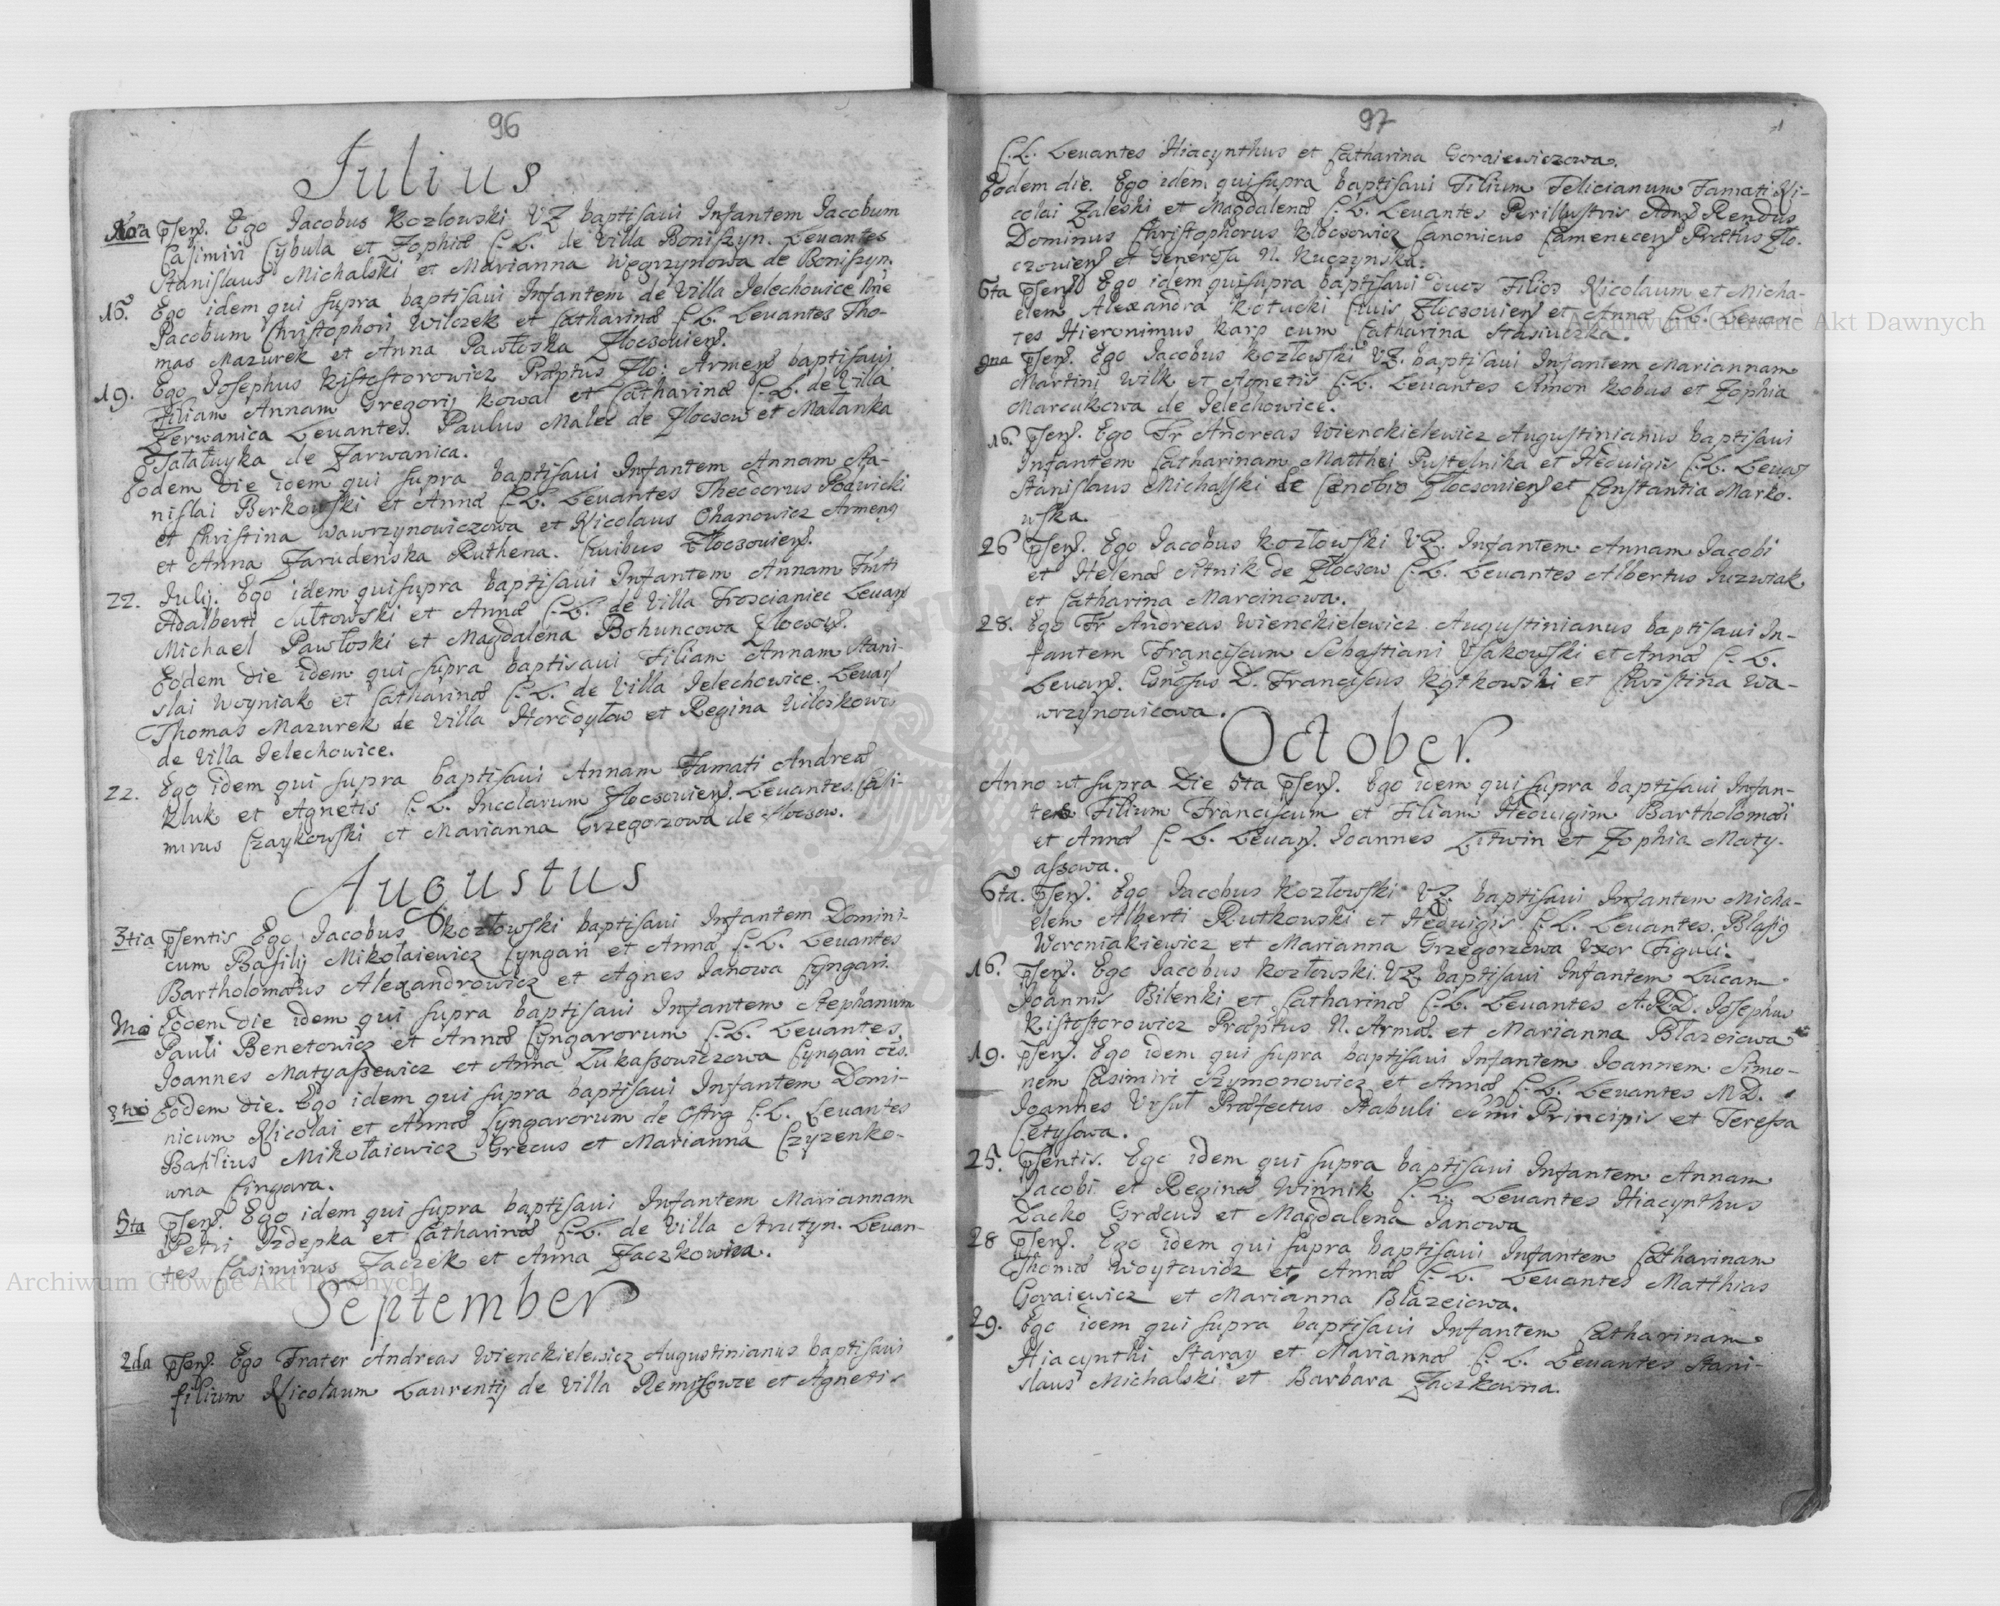 96
Julius
10ma pſens. Ego Jacobus Kozlowski VZ baptiſavi Infantem Jacobum
Casimiri Cybula et Zophiæ C.L. de Villa Boniſzyn. Levantes
Staniſlaus Michalski et Marianna Węgrzynowa de Boniſzyn.
16. Ego idem qui ſupra baptiſavi Infantem de Villa Jelechowice
Jacobum Chriſtophori Wilczek et Catharinæ C.L. Levantes Tho-
mas Mazurek et Anna Pawłoska Zloczoviens.
19. Ego Joſephus Kiſtoſtorowicz Præptus Zlo: Armens baptiſavi
Filiam Annam Gregorij Kowal et Catharinæ C.L. de Villa
Zerwanica Levantes. Paulus Malec de Zloczow et Małanka
Tałałuyka de Zarwanica.
Eodem die idem qui ſupra baptiſavi Infantem Annam Sta-
niſlai Berkowſki et Annæ C.L. Levantes Theodorus Sawicki
et Chriſtina Wawrzynowiczowa et Nicolaus Ohanowicz Armens
et Anna Zarudeńska Ruthena. Civibus Zloczoviens.
22. Julij. Ego idem qui ſupra baptiſavi Infantem Annam
Adalberti Sułtowski et Annæ C.L. de Villa Troscianiec Levans
Michael Pawłoski et Magdalena Bohuncowa Zloczow.
Eodem die idem qui ſupra baptisavi Filiam Annam Stani-
slai Woyniak et Catharinæ C.L. de Villa Jelechowice. Levans
Thomas Mazurek de Villa Horodyłow et Regina Wilczkowa
de Villa Jelechowice.
22. Ego idem qui ſupra baptiſavi Annam Famati Andreæ
Kluk et Agnetis C.L. Incolarum Zloczoviens. Levantes. Caſi-
mirus Czaykowſki et Marianna Grzegorzowa de Zloczow.
Augustus
3tia pſentis Ego Jacobus Kozłowſki baptiſavi Infantem Domini-
cum Baſilij Mikołaiewicz Cyngari et Annæ C.L. Levantes
Bartholomæus Alexandrowicz et Agnes Janowa Cyngari.
Eodem die idem qui ſupra baptiſavi Infantem Stephanum
Pauli Benetowicz et Annæ Cyngarorum C.L. Levantes
Joannes Matyaſzewicz et Anna Łukaſzowiczowa Cyngari
Eodem die. Ego idem qui ſupra baptiſavi Infantem Domi-
nicum Nicolai et Annæ Cyngarorum de Oſtrg C.L. Levantes
Baſilius Mikołaiewicz Grecus et Marianna Czyzenko-
wna Cingara.
5ta pſens. Ego idem qui ſupra baptiſavi Infantem Mariannam
Petri Izdepka et Catharinæ C.L. de Villa Strutyn. Levan-
tes Caſimirus Zaczek et Anna Zaczkowna.
September
2da pſens. Ego Frater Andreas Wienckielewicz Auguſtinianus baptiſavi
filium Nicolaum Laurentij de Villa Remiſzowce et Agnetis
97
C.L. Levantes Hiacynthus et Catharina Goraiewiczowa.
Eodem die. Ego idem qui ſupra baptiſavi Filium Felicianum Famati Ni-
colai Zaleski et Magdalenæ C.L. Levantes Perilluſtris Adms Rendus
Dominus Chriſtophorus Kłoſsowicz Canonicus Camenecens Prætus Zlo-
czoviens et Generoſa N. Kuczynska.
6ta pſens Ego idem qui ſupra baptiſavi duos Filios Nicolaum et Micha-
elem Alexandra Kotucki Civis Zloczoviens et Annæ C.L. Levan-
tes Hieronimus Karp cum Catharina Staſiuczka.
9na pſens. Ego Jacobus Kozłowſki VZ. baptiſavi Infantem Mariannam
Martini Wilk et Agnetis C.L. Levantes Simon Kobus et Zophia
Marcukowa de Jelechowice.
16. pſens. Ego Fr Andreas Wienckielewicz Auguſtinianus baptiſavi
Infantem Catharinam Matthei Puſtelnika et Hedvigis C.L. Levans
Staniſlaus Michalſki de Cænobio Zloczoviens et Conſtantia Marko-
wſka.
26 pſens. Ego Jacobus Kozłowſki VZ. Infantem Annam Jacobi
et Helenæ Sitnik de Zloczow C.L. Levantes Albertus Juzwiak
et Catharina Marcinowa.
28. Ego Fr Andreas Wienckielewicz Auguſtinianus baptiſavi In-
fantem Franciſcum Sebaſtiani Uſakowſki et Annæ C.L.
Levans. D. Franciſcus Kątkowski et Chriſtina Wa-
wrzynowicowa.
October
Anno ut ſupra Die 5ta pſens. Ego idem qui ſupra baptiſavi Infan-
tes Filium Franciſcum et Filiam Hedvigim Bartholomæi
et Annæ C.L. Levans. Joannes Litwin et Zophia Maty-
aſzowa.
6ta. pſens. Ego Jacobus Kozłowſki VZ baptiſavi Infantem Micha-
elem Alberti Rutkowski et Hedvigis C.L. Levantes. Blaſig
Woroniakiewicz et Marianna Grzegorzowa Uxor Figuli.
16. pſens. Ego Jacobus Kozłowſki VZ baptiſavi Infantem Lucam
Joannis Bilenki et Catharinæ C.L. Levantes A.R.D. Joſephus
Kiſtoſtorowicz Præptus N. Armæ. et Marianna Błazeiowa
19. pſens. Ego idem qui ſupra baptiſavi Infantem Joannem Simo-
nem Caſimiri Szymonowicz et Annæ C.L. Levantes M.D.
Joannes Urſuł Præfectus Stabuli Principis et Tereſsa
Cetyſowa.
25. pſentis. Ego idem qui ſupra baptiſavi Infantem Annam
Jacobi et Reginæ Winnik C.L. Levantes Hiacynthus
Lacko Græcus et Magdalena Janowa
28 pſens. Ego idem qui ſupra baptiſavi Infantem Catharinam
Thomæ Woytowicz et Annæ C.L. Levantes Matthias
Goraiewicz et Marianna Błazeiowa.
29. Ego idem qui ſupra baptiſavi Infantem Catharinam
Hiacynthi Staray et Mariannæ C.L. Levantes Stani-
slaus Michalski et Barbara Zaczkowna.
Archiwum Główne Akt Dawnych
Archiwum Główne Akt Dawnych